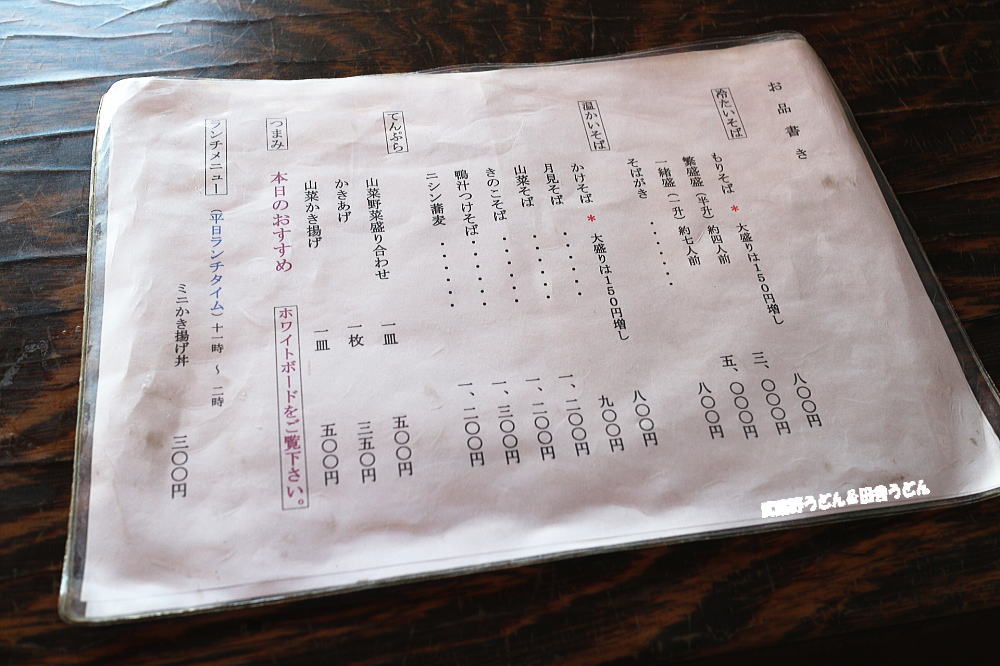 お品書き
冷たいそば
もりそば ＊大盛りは１５０円増し 八〇〇円
繁盛盛（半升）約四人前 三、〇〇〇円
一緒盛（一升）約七人前 五、〇〇〇円
そばがき ・・・・・ 八〇〇円
温かいそば
かけそば ＊大盛りは１５０円増し 八〇〇円
月見そば ・・・・・ 九〇〇円
山菜そば ・・・・・ 一、二〇〇円
きのこそば ・・・・・ 一、二〇〇円
鴨汁つけそば ・・・・・ 一、三〇〇円
ニシン蕎麦 ・・・・・ 一、二〇〇円
てんぷら
山菜野菜盛り合わせ 一皿 五〇〇円
かきあげ 一枚 三五〇円
山菜かき揚げ 一皿 五〇〇円
つまみ 本日のおすすめ ホワイトボードをご覧下さい。
ランチメニュー （平日ランチタイム）十一時 ～ 二時
ミニかき揚げ丼 三〇〇円
うどん＆田舎うどん